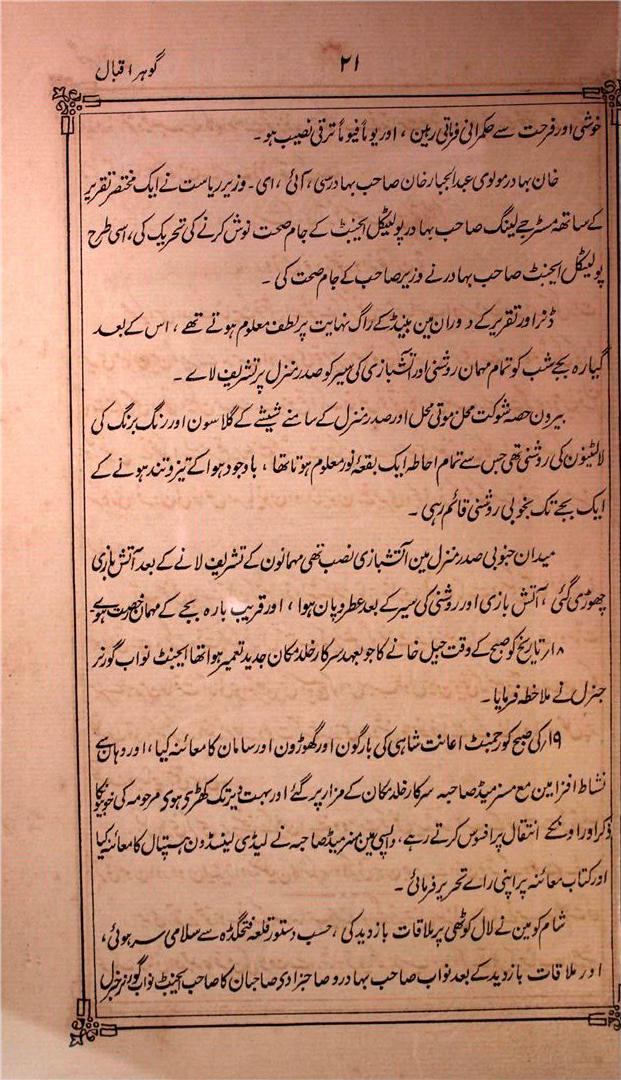 گوہر اقبال
۲۱
خوشی اور فرحت سے حکمرانی فرماتی رہین ، اور یوماً فیوماً ترقی نصیب ہو ۔
خان بہادر مولوی عبدالجبار خان صاحب بہادر سی، آئی ، ای ۔ وزیر ریاست نے ایک مختصر تقریر
کے ساتھ مسٹر جے لینگ صاحب بہادر پولیٹکل ایجنٹ کے جام صحت نوش کرنے کی تحریک کی، اسی طرح
پولیٹکل ایجنٹ صاحب بہادر نے وزیر صاحب کے جام صحت کی ۔
ڈنر اور تقریر کے دوران مین بینڈ کے راگ نہایت پر لطف معلوم ہوتے تھے ، اس کے بعد
گیارہ بجے شب کو تمام مہمان روشنی اور آتش بازی کی سیر کو صدر منزل پر تشریف لائے ۔
بیرون حصہ شوکت محل موتی محل اور صدر منزل کے سامنے شیشے کے گلاسون اور رنگ برنگ کی
لالٹینون کی روشنی تھی جس سے تمام احاطہ ایک بقعہ نور معلوم ہوتا تھا ، باوجود ہوا کے تیز و تند ہونے کے
ایک بجے تک بخوبی روشنی قائم رہی ۔
میدان جنوبی صدر منزل مین آتشبازی نصب تھی مہمانون کے تشریف لانے کے بعد آتش بازی
چھوڑی گئی ، آتش بازی اور روشنی کی سیر کے بعد عطر و پان ہوا ، اور قریب بارہ بجے کے مہمان رخصت ہوے
۱۸ر تاریخ کو صبح کے وقت جیل خانے کا جو بعہد سرکار خلد مکان جدید تعمیر ہوا تھا ایجنٹ نواب گورنر
جنرل نے ملاخطہ فرمایا ۔
۱۹ر کی صبح کو رجمنٹ اعانت شاہی کی بارگون اور گھوڑون اور سامان کا معائنہ کیا ، اور وہان سے
نشاط افزا مین مع مسز میڈ صاحبہ سرکار خلد مکان کے مزار پر گئے اور بہت دیر تک کھڑی ہوی مرحومہ کی خوبیونکا
ذکر اور اونکے انتقال پر افسوس کرتے رہے، واپسی مین مسز میڈ صاحبہ نے لیڈی لینسڈون ہسپتال کا معائنہ کیا
اور کتاب معائنہ پر اپنی راے تحریر فرمائی ۔
شام کو مین نے لال کوٹھی پر ملاقات بازدید کی ، حسب دستور قلعہ فتحگڈہ سے سلامی سر ہوئی ،
اور ملاقات بازدید کے بعد نواب صاحب بہادر و صاحبزادی صاحبان کا صاحب ایجنٹ نواب گورنر جنرل